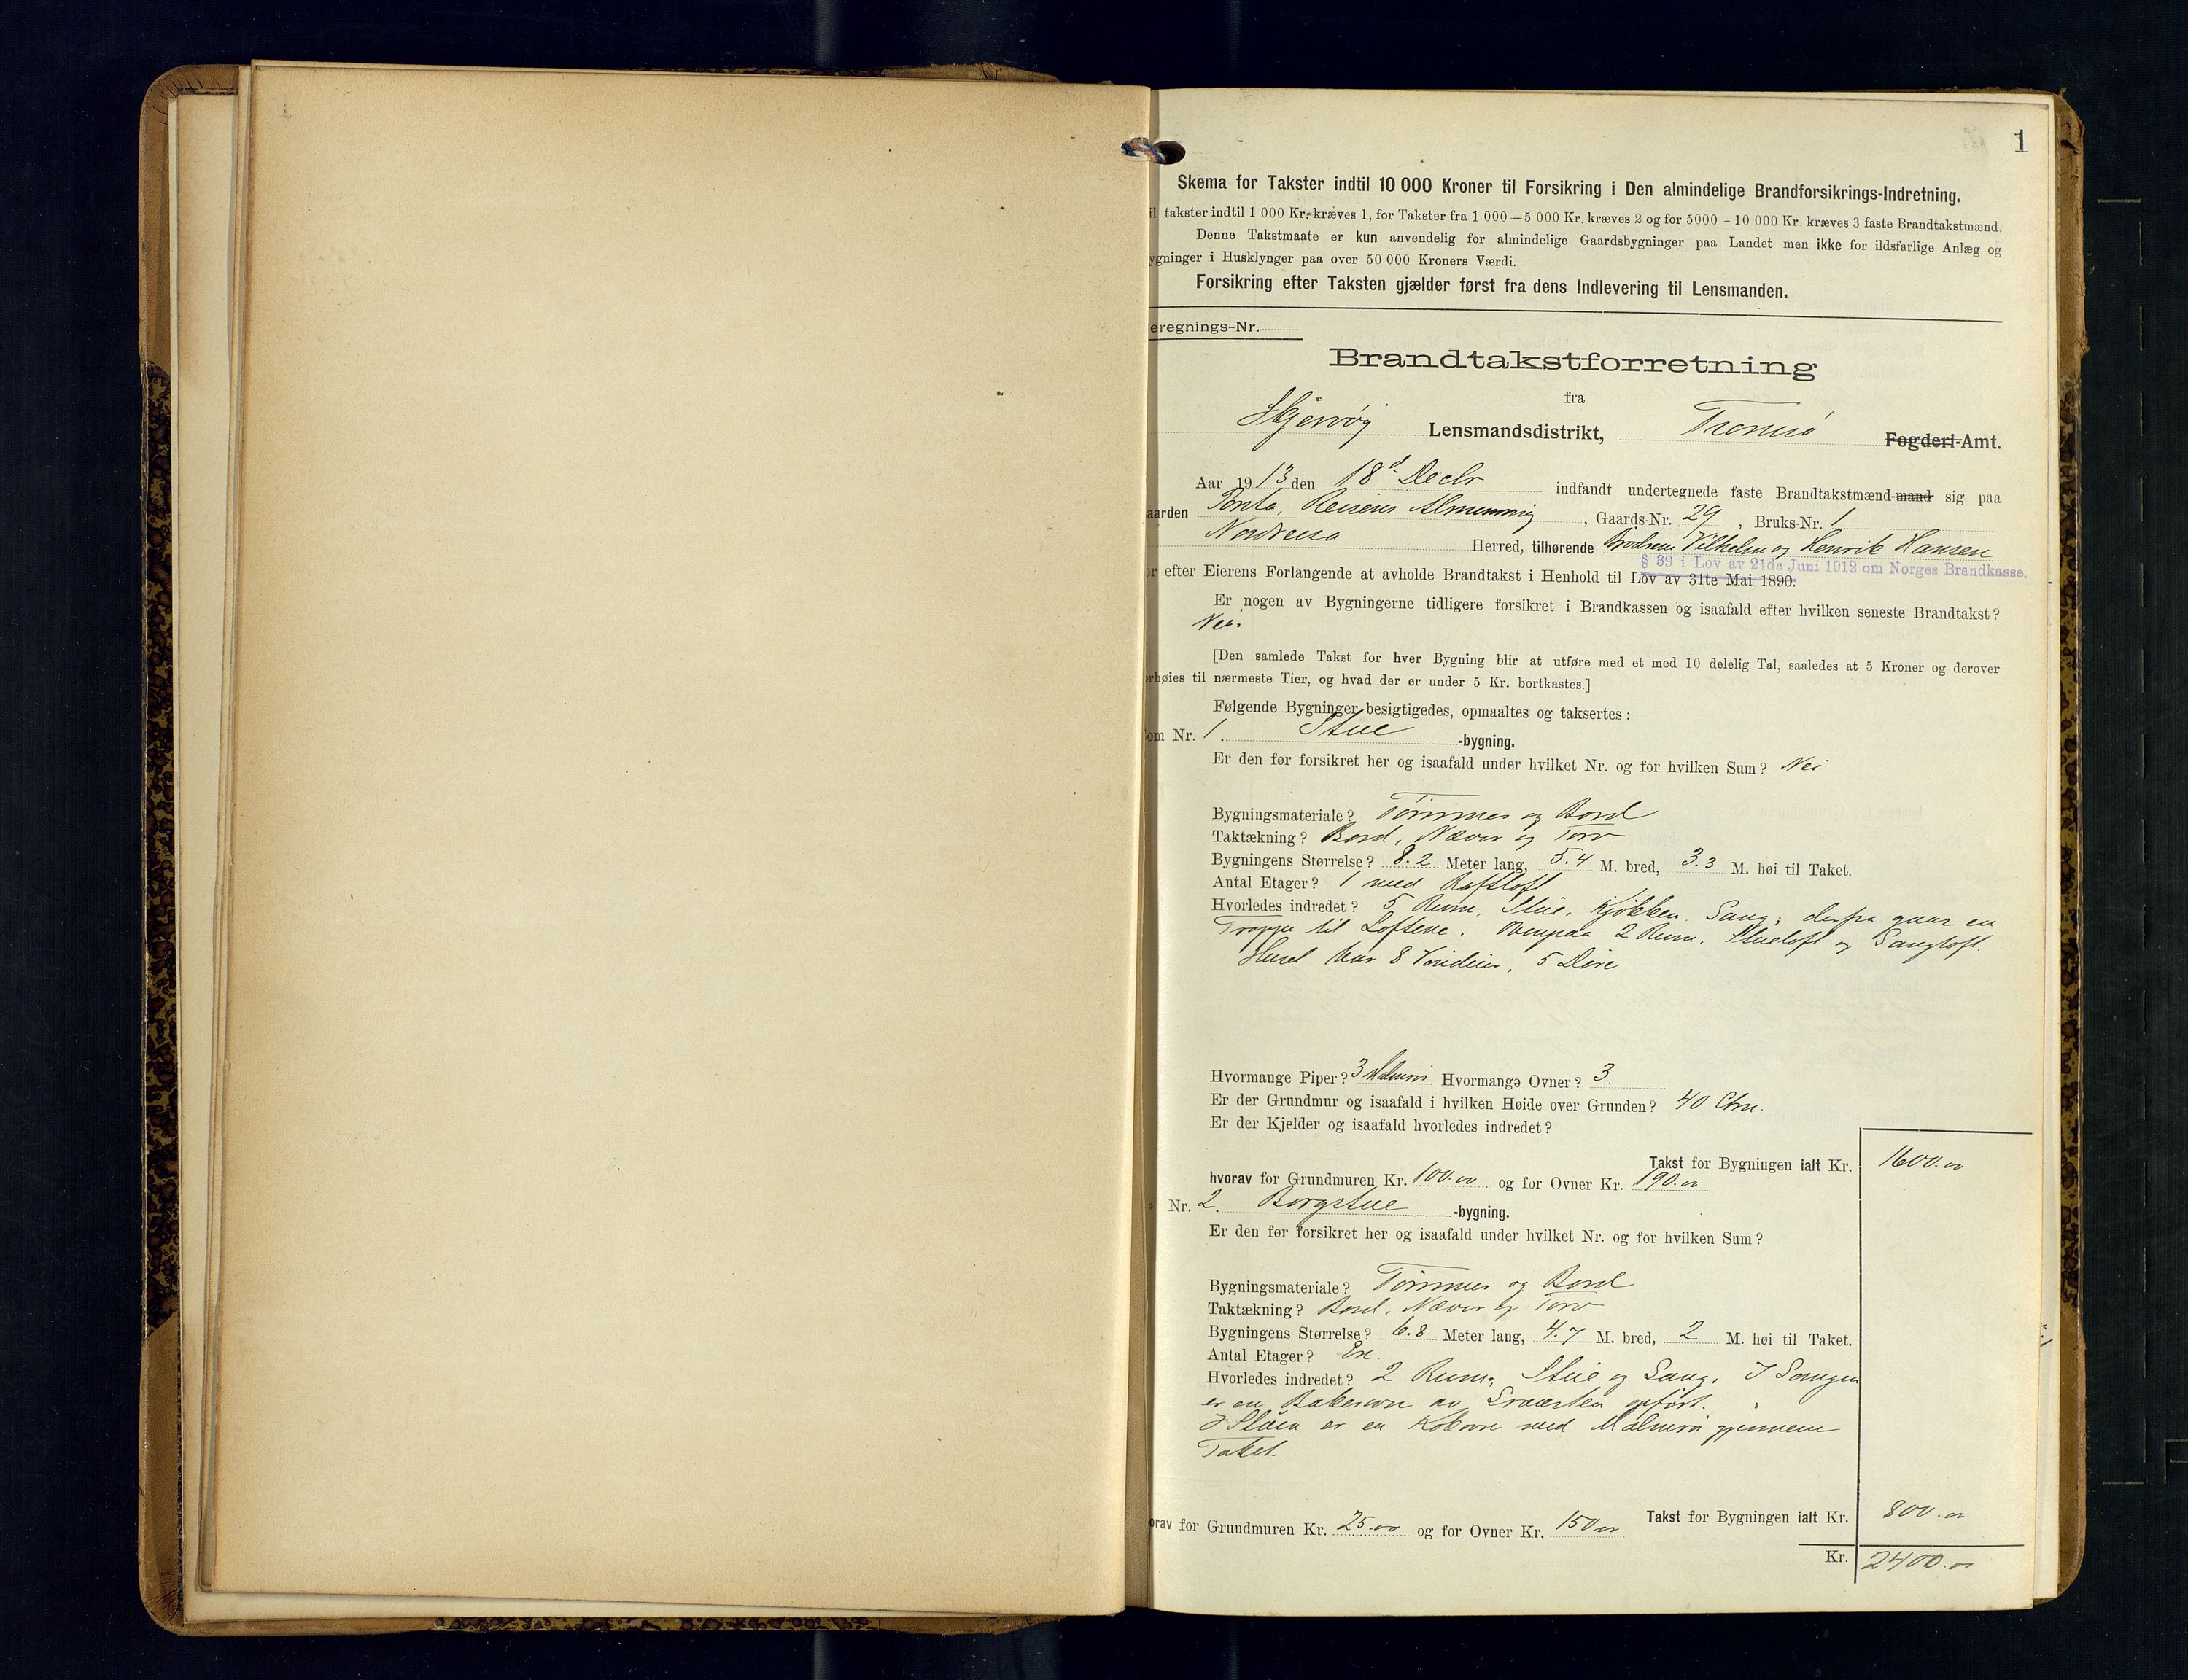 1
Skema for Takster indtil 10 000 Kroner til Forsikring i Den almindelige Brandforsikrings-Indretning.
il takster indtil 1 000 Kr. kræves 1, for Takster fra 1 000 — 5 000 Kr. kræves 2 og for 5000 - 10 000 Kr kræves 3 faste Brandtakstmænd.
Denne Takstmaate er kun anvendelig for almindelige Gaardsbygninger paa Landet men ikke for ildsfarlige Anlæg og
ygninger i Husklynger paa over 50 000 Kroners Værdi.
Forsikring efter Taksten gjælder først fra dens Indlevering til Lensmanden.
eregnings-Nr.
Brandtakstforretning
fra
Skjervøy Lensmandsdistrikt, Tromsø Fogderi-Amt.
Aar 1913 den 18d Decbr indfandt undertegnede faste Brandtakstmænd-mand sig paa
aarden Reisens Almenning, Gaards-Nr. 29, Bruks-Nr. 1
Nordreisa Herred, tilhørende Brødrene Vilhelm og Henrik Hansen
§ 39 i Lov av 21de Juni 1912 om Norges Brandkasse.
or efter Eierens Forlangende at avholde Brandtakst i Henhold til Lov av 31te Mai 1890.
Er nogen av Bygningerne tidligere forsikret i Brandkassen og isaafald efter hvilken seneste Brandtakst?
Nei.
[Den samlede Takst for hver Bygning blir at utføre med et med 10 delelig Tal, saaledes at 5 Kroner og derover
rhøies til nærmeste Tier, og hvad der er under 5 Kr. bortkastes.]
Følgende Bygninger besigtigedes, opmaaltes og taksertes:
om Nr. 1. Stue -bygning.
Er den før forsikret her og isaafald under hvilket Nr. og for hvilken Sum? Nei
Bygningsmateriale? Tømmer og Bord
Taktækning? Bord, Næver og Torv
Bygningens Størrelse? 8.2 Meter lang, 5.4 M. bred, 3.3 M. høi til Taket.
Antal Etager? 1 med Loftsloft
Hvorledes indredet? 5 Rum, Stue, Kjøkken. Sang; derfra gaar en
Trappe til Loftene. Ovenpaa 2 Rum. Stueloft og Sangloft.
Huset har 8 Vinduer, 5 Døre
Hvormange Piper? 3 Malmrør Hvormange Ovner? 3.
Er der Grundmur og isaafald i hvilken Høide over Grunden? 40 Ctm.
Er der Kjelder og isaafald hvorledes indredet?
Takst for Bygningen ialt Kr. 1600.00
hvorav for Grundmuren Kr. 100.00 og for Ovner Kr. 190.00
Nr. 2. Borgstue -bygning.
Er den før forsikret her og isaafald under hvilket Nr. og for hvilken Sum?
Bygningsmateriale? Tømmer og Bord
Taktækning? Bord, Næver og Torv
Bygningens Størrelse? 6.8 Meter lang, 4.7 M. bred, 2 M. høi til Taket.
Antal Etager? En.
Hvorledes indredet? 2 Rum, Stue og Sang. I Sangen
er en Bakerovn av Graasten opført.
I Stuen er en Kokovn med Malmrør gjennem
Taket.
orav for Grundmuren Kr. 25.00 og for Ovner Kr. 150.00 Takst for Bygningen ialt Kr. 800.00
Kr. 2400.00